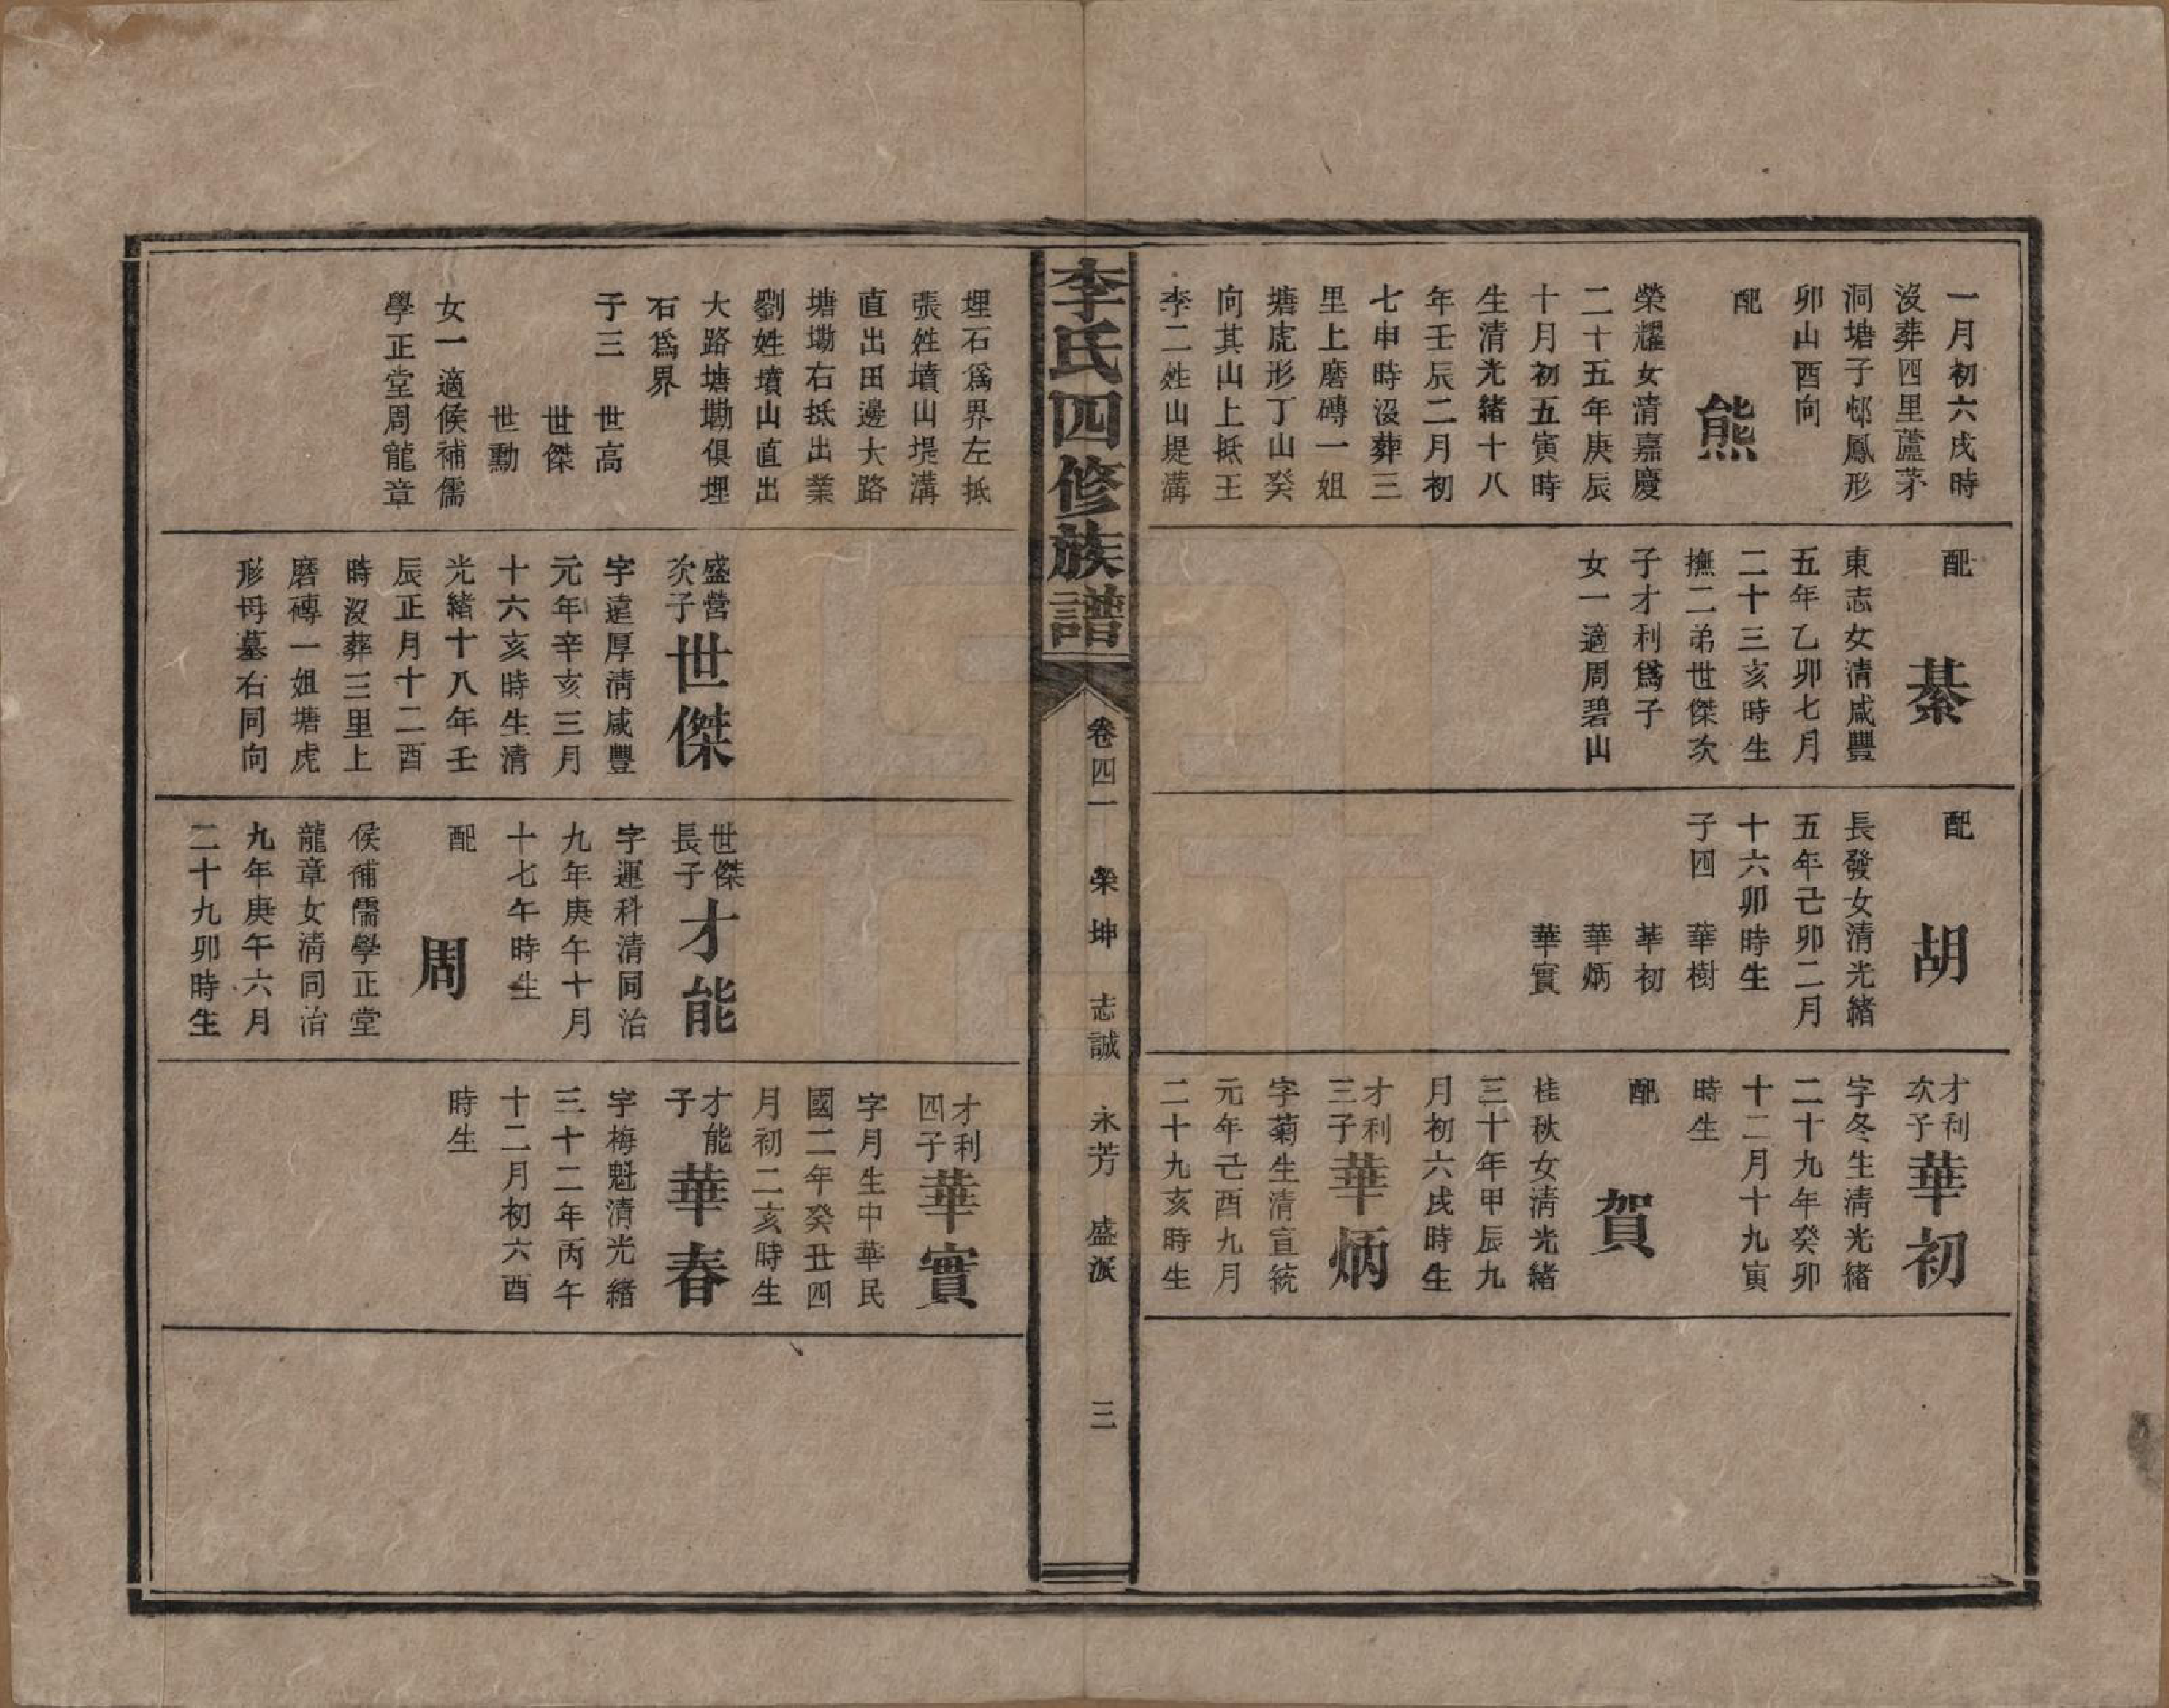 一月初六戌時
沒葬四里蘆茅
洞塘子邨鳳形
卯山酉向
配 熊
榮耀女清嘉慶
二十五年庚辰
十月初五寅時
生清光緒十八
年壬辰二月初
七申時沒葬三
里上磨磚一姐
塘虎形丁山癸
向其山上抵王
李二姓山堤溝
配 綦
東志女清咸豐
五年乙卯七月
二十三亥時生
撫二弟世傑次
子才利爲子
女一適周碧山
配 胡
長發女清光緒
五年己卯二月
十六卯時生
子四 華樹
華初
華炳
華實
才利次子 華初
字冬生清光緒
二十九年癸卯
十二月十九寅
時生
配 賀
桂秋女清光緒
三十年甲辰九
月初六戌時生
才利三子 華炳
字菊生清宣統
元年己酉九月
二十九亥時生
李氏四修族譜
卷四一 榮坤 志誠 永芳 盛派 三
埋石爲界左抵
張姓墳山堤溝
直出田邊大路
塘墈右抵出業
劉姓墳山直出
大路塘墈俱埋
石爲界
子三 世高
世傑
世勳
女一適候補儒
學正堂周龍章
盛營次子 世傑
字遠厚清咸豐
元年辛亥三月
十六亥時生清
光緒十八年壬
辰正月十二酉
時沒葬三里上
磨磚一姐塘虎
形母墓右同向
世傑長子 才能
字運科清同治
九年庚午十月
十七午時生
配 周
侯補儒學正堂
龍章女清同治
九年庚午六月
二十九卯時生
才利四子 華實
字月生中華民
國二年癸丑四
月初二亥時生
才能子 華春
字梅魁清光緒
三十二年丙午
十二月初六酉
時生